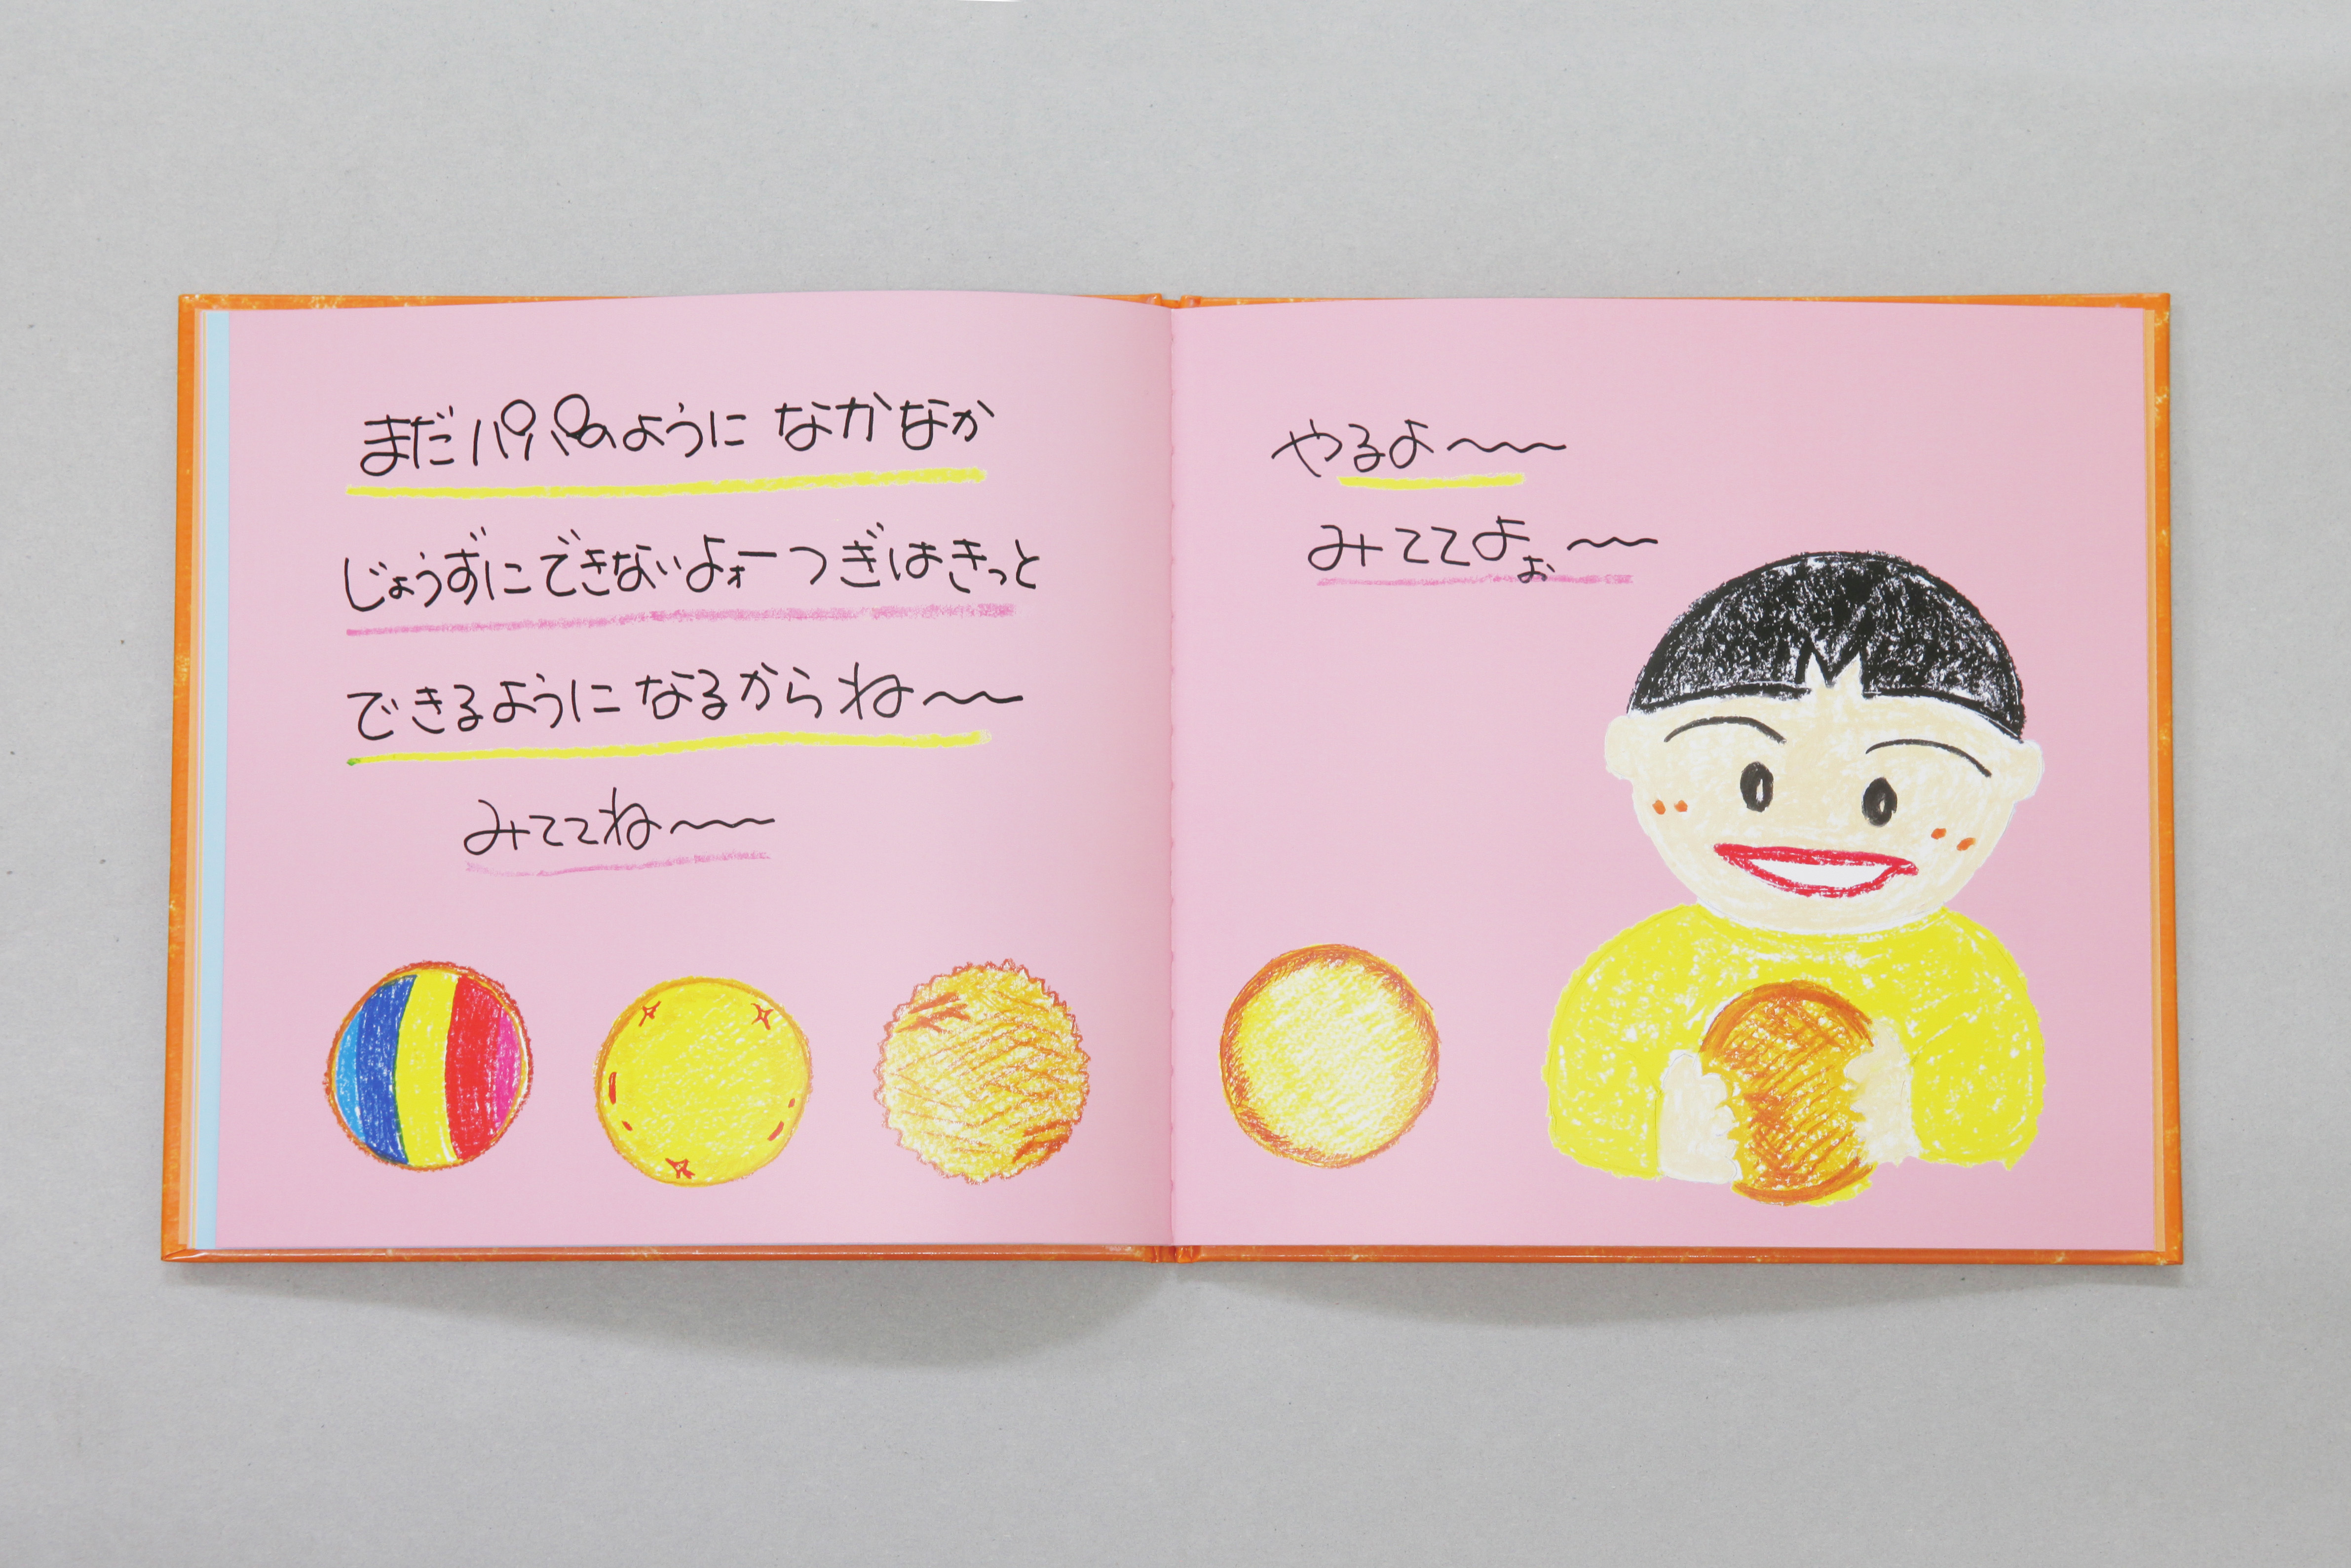 まだパパのように なかなか
じょうずにできないよォーつぎはきっと
できるように なるから ね〜〜
みててね〜〜
やるよ〜〜
みててよぉ〜〜